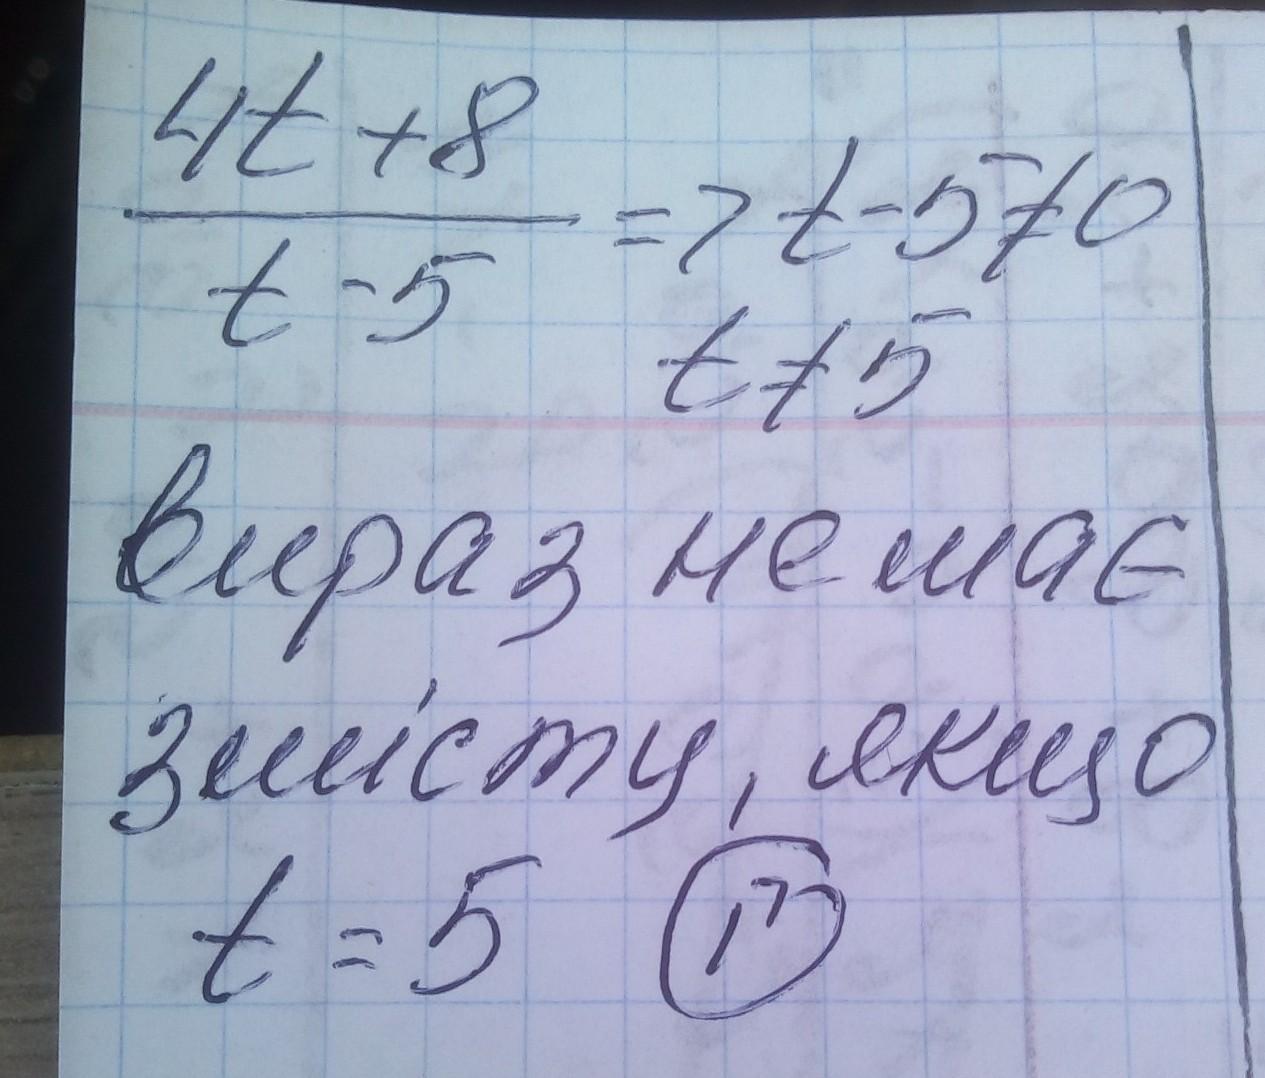 4t+8
t-5 => t-5≠0
t≠5
вираз немає
змісту, якщо
t=5 Г